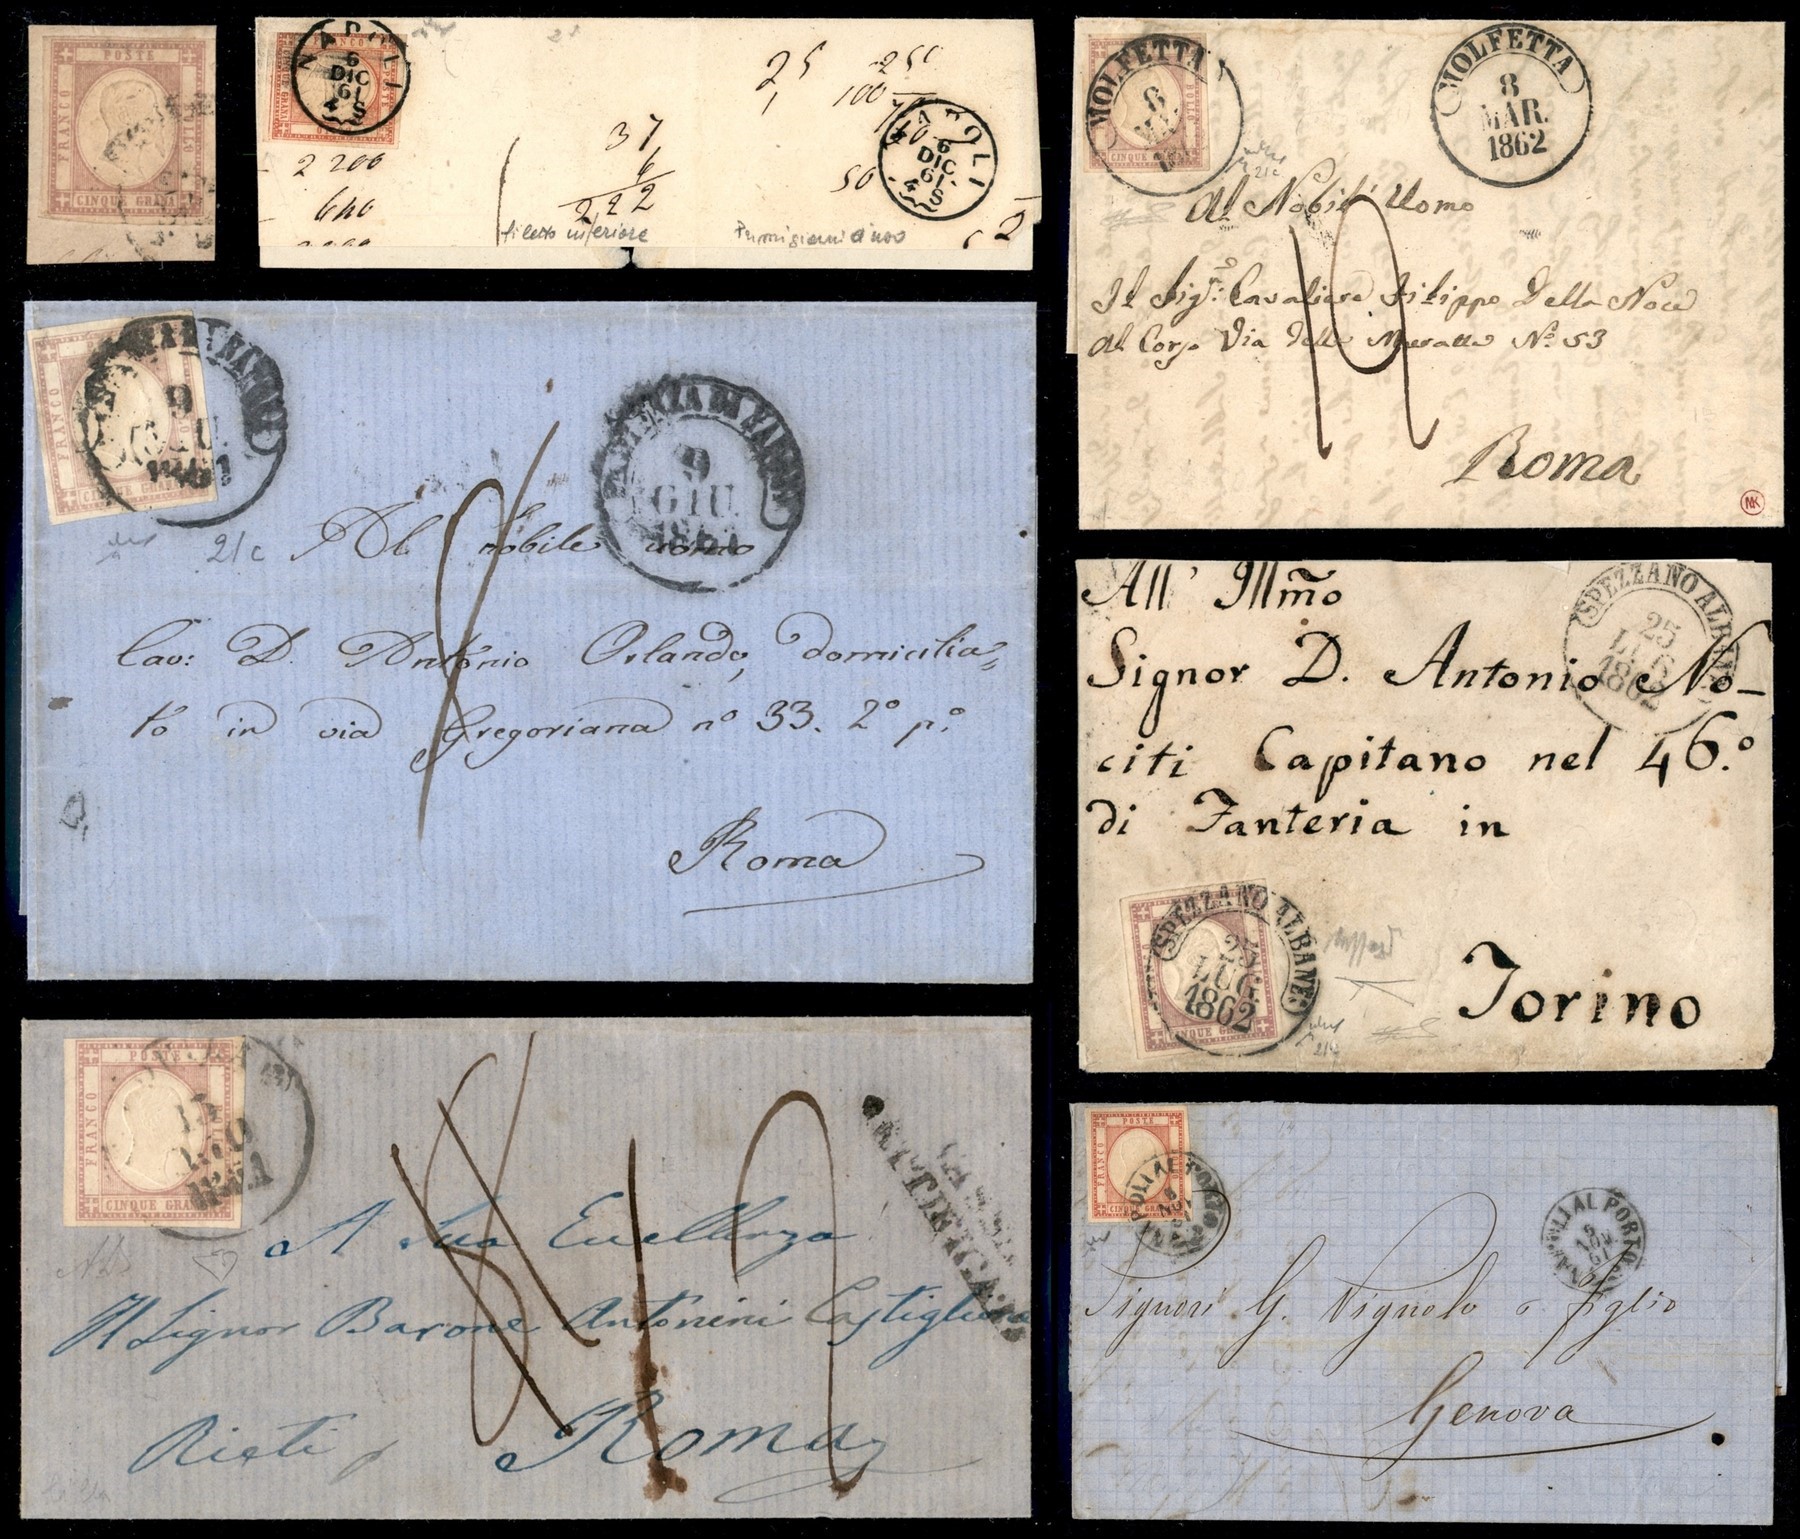 POSTE
FRANCO
BOLLO
CINQUE GRANA
NAPOLI
6
DIC
61
4 S
FRANCO
25 250
1 100
37
6
222
2 200
640
50
2
NAPOLI
6
DIC
61
4 S
filetto inferiore
MOLFETTA
8
BOLLO
CINQUE GRANA
MOLFETTA
8
MAR.
1862
21c
Al Nobil Uomo
Il Sigr: Cavaliere Filippo Della Noce
Al Corso Via delle Muratte No. 53
Roma
NK
FRANCO
CINQUE GRANA
9
1861
9
GIU.
1861
21c
Al nobile uomo
Cav: D. Antonio Orlando, domicilia-
to in via Gregoriana no 33. 2o po.
Roma
All' Illmo
Signor D. Antonio No-
citi Capitano nel 46.o
di Fanteria in
Torino
SPEZZANO ALBANESE
25
LUG
1862
SPEZZANO ALBANESE
25
LUG.
1862
CINQUE GRANA
21c
POSTE
FRANCO
CINQUE GRANA
1861
A Sua Eccellenza
Il Signor Barone Antonini Castiglione
Rieti p Roma
POSTE
FRANCO
CINQUE GRANA
NAPOLI AL PORTO
NAPOLI AL PORTO
9
NOV
61
Signori G. Vignolo e figlio
Genova